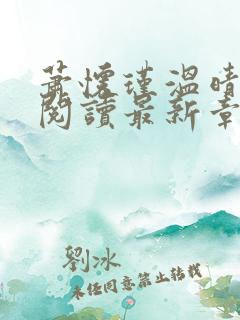 萧懷瑾温晴
閱讀最新章
劉冰
未经同意禁止转载